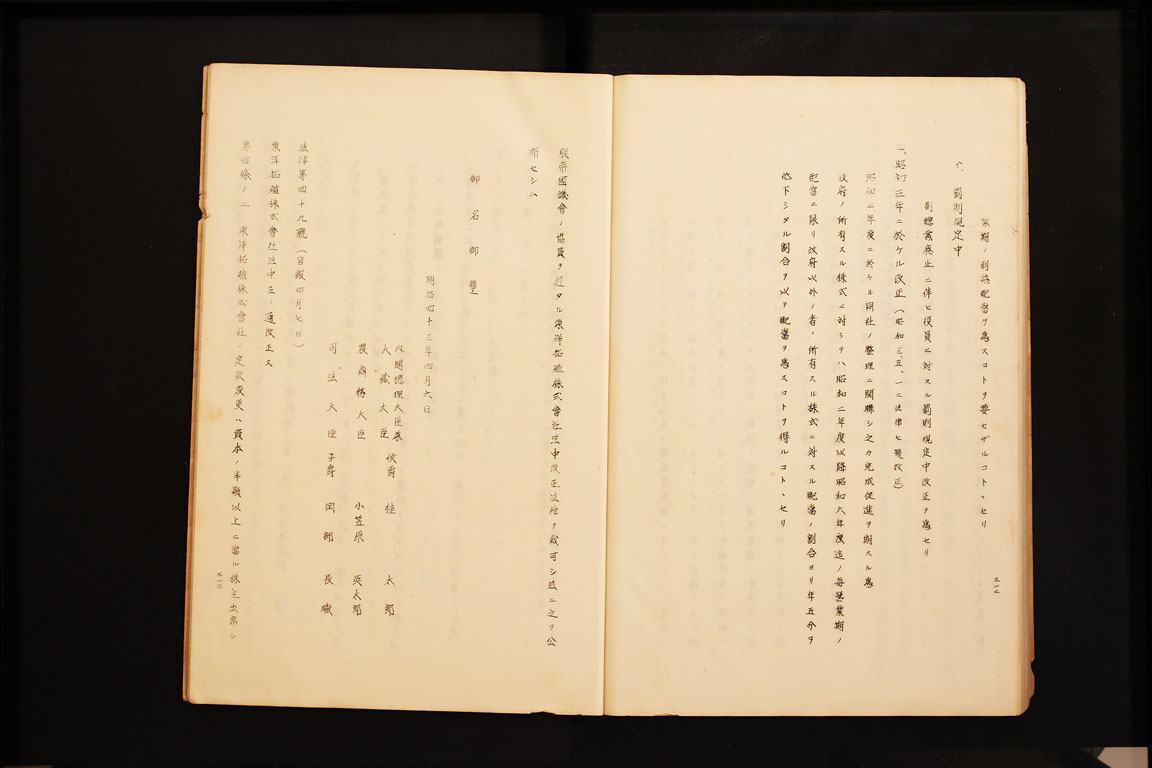 業期ノ利益配當ヲ爲スコトヲ要セザルコトヽセリ
六、罰則規定中
副總裁廢止ニ伴ヒ役員ニ対スル罰則規定中改正ヲ爲セリ
一、昭和三年ニ於ケル改正（昭和三、五、一二法律七號改正）
昭和二年度ニ於ケル同社ノ整理ニ関聯シ之カ完成促進ヲ期スル爲
政府ノ所有スル株式ニ対シテハ昭和二年度以降昭和六年度迄ノ毎營業期ノ
配當ニ限リ政府以外ノ者ノ所有スル株式ニ対スル配當ノ割合ヨリ年五分ヲ
低下シタル割合ヲ以テ配當ヲ爲スコトヲ得ルコトヽセリ
朕帝國議會ノ協賛ヲ經タル東洋拓殖株式會社法中改正法律ヲ裁可シ茲ニ之ヲ公
布セシム
御名御璽
明治四十三年四月六日
内閣總理大臣兼
大藏大臣 侯爵 桂 太郎
農商務大臣 小笠原 英太郎
司法大臣 子爵 岡部 長職
法律第四十九號（官報四月七日）
東洋拓殖株式會社法中左ノ通改正ス
第四條ノ二 東洋拓殖株式會社ノ定款変更ハ資本ノ半額以上ニ當ル株主出席シ